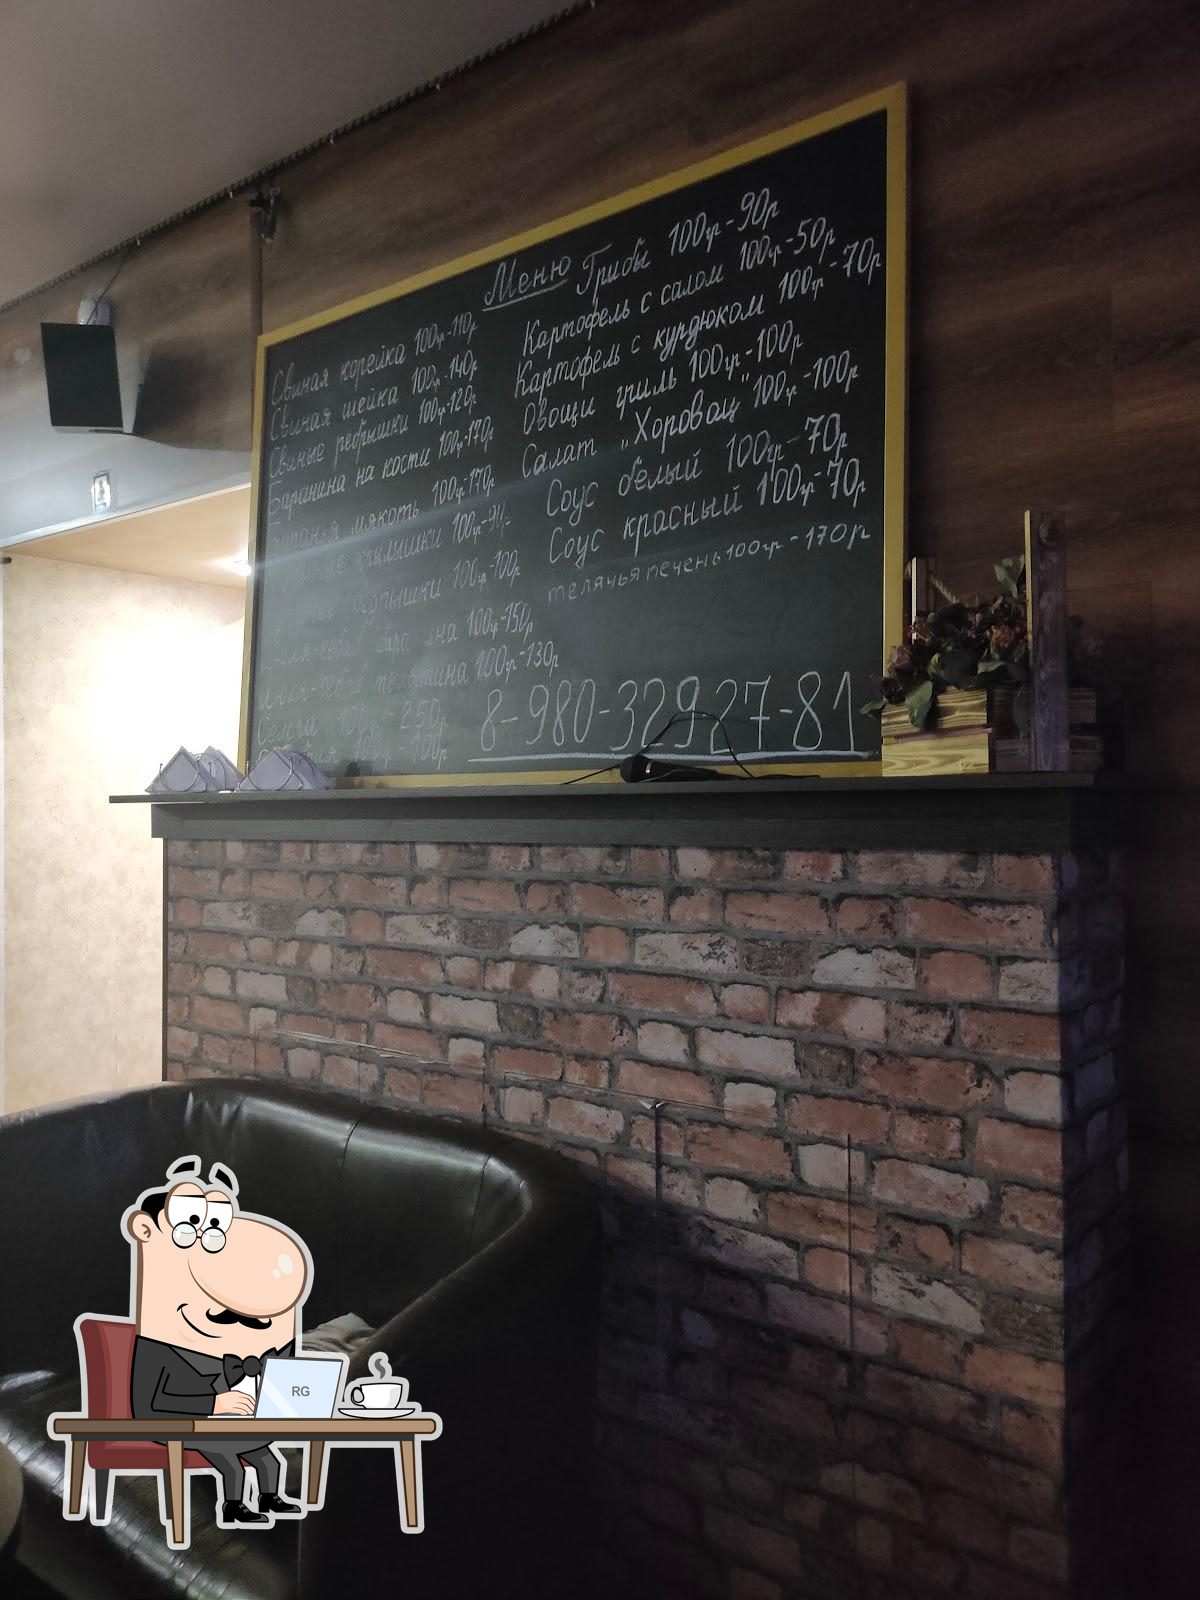 Меню
Свиная корейка 100гр-110р
Свиная шейка 100гр-140р
Свиные ребрышки 100гр-120р
Баранина на кости 100гр-170р
мякоть 100гр-170р
крылышки 100гр-
100гр-100р
100гр-150р
100гр-130р
Семга 100гр-250р
100р
Грибы 100гр-90р
Картофель с салом 100гр-50р
Картофель с курдюком 100гр-70р
Овощи гриль 100гр-100р
Салат „Хоровац" 100гр-100р
Соус белый 100гр-70р
Соус красный 100гр-70р
телячья печень 100гр-170р
8-980-32927-81
RG